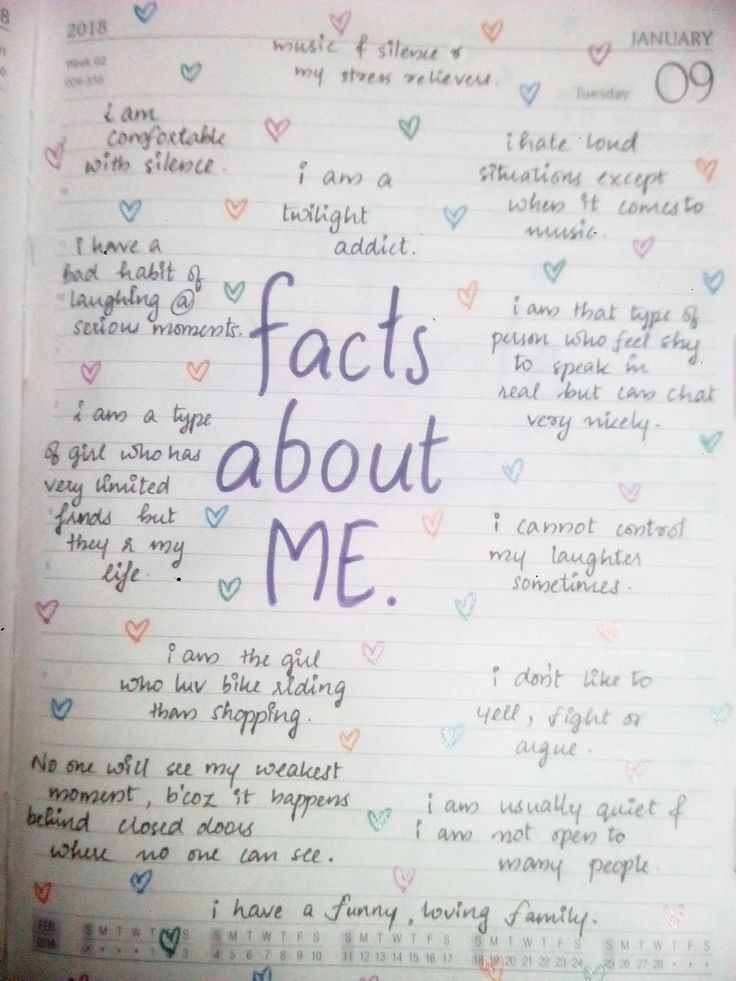 2018
JANUARY
Week 02
009-356
Tuesday
09
music & silence r
my stress relievers.
i am
comfortable
with silence.
i am a
twilight
addict.
i hate loud
situations except
when it comes to
music.
i have a
bad habit of
laughing @
serious moments.
i am that type of
person who feel shy
to speak in
real but can chat
very nicely.
facts
about
ME.
i am a type
of girl who has
very limited
frnds but
they r my
life.
i cannot control
my laughter
sometimes.
i am the girl
who luv bike riding
than shopping.
i don't like to
yell, fight or
argue.
No one will see my weakest
moment, b'coz it happens
behind closed doors
where no one can see.
i am usually quiet &
i am not open to
many people.
i have a funny, loving family.
FEB
2018
S M T W T F S S M T W T F S S M T W T F S S M T W T F S S M T W T F S
3 4 5 6 7 8 9 10 11 12 13 14 15 16 17 18 19 20 21 22 23 24 25 26 27 28